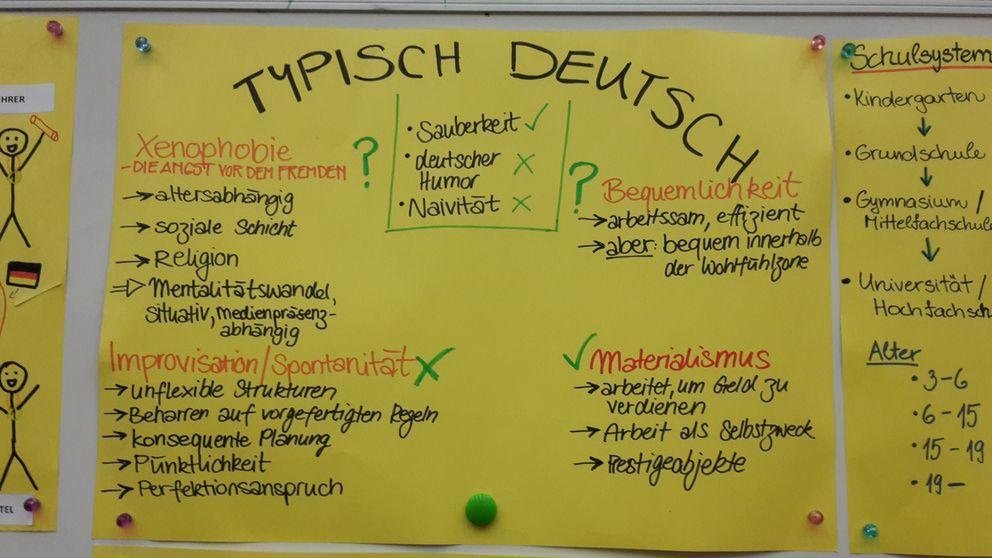 TYPISCH DEUTSCH
• Sauberkeit ✓
• deutscher
Humor ✗
• Naivität ✗
Xenophobie ?
- DIE ANGST VOR DEM FREMDEN
→ altersabhängig
→ soziale Schicht
→ Religion
⇒ Mentalitätswandel,
situativ, medienpräsenz-
abhängig
? Bequemlichkeit
→ arbeitssam, effizient
→ aber: bequem innerhalb
der Wohlfühlzone
Improvisation/Spontanität ✗
→ unflexible Strukturen
→ Beharren auf vorgefertigten Regeln
→ konsequente Planung
→ Pünktlichkeit
→ Perfektionsanspruch
✓ Materialismus
→ arbeitet, um Geld zu
verdienen
→ Arbeit als Selbstzweck
→ Prestigeobjekte
Schulsystem
• Kindergarten
↓
• Grundschule
↓
• Gymnasium /
Mittelfachschule
↓
• Universität /
Hochfachsch
Alter
• 3-6
• 6-15
• 15-19
• 19-
HRER
TEL